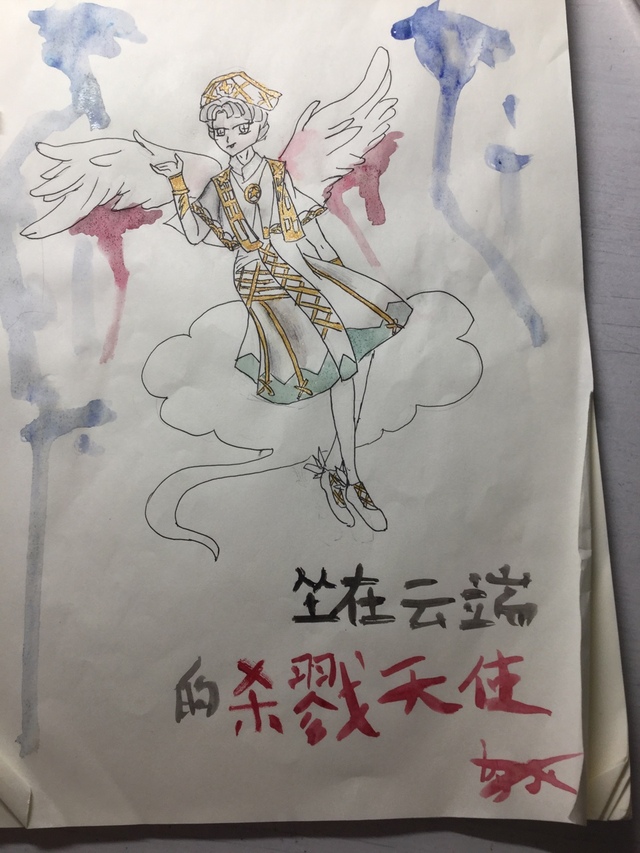 坐在云端
的杀戮天使